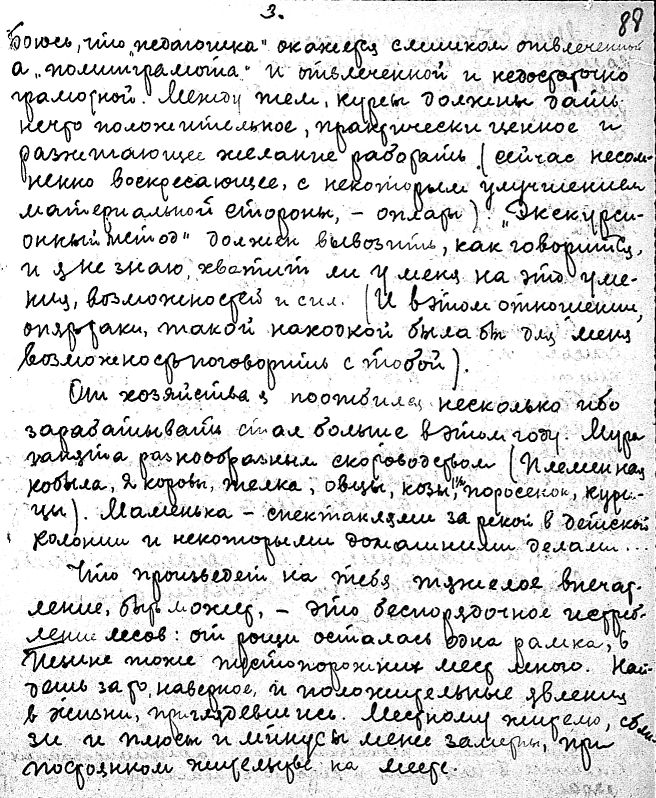 3.
88
Боюсь, что „педагогика" окажется слишком отвлеченной
а „политграмота" и отвлеченной и недостаточно
грамотной. Между тем, курсы должны дать
нечто положительное, практически ценное и
разжигающее желание работать (сейчас несом-
ненно воскресающее, с некоторым улучшением
материальной стороны, – оплаты). „Экскурси-
онный метод" должен вывозить, как говорится,
и я не знаю, хватит ли у меня на это уме-
ния, возможностей и сил. (И в этом отношении,
опять таки, такой находкой была бы для меня
возможность поговорить с тобой).
От хозяйства я поотбился несколько ибо
зарабатывать стал больше в этом году. Мура
занята разнообразным скотоводством (Племенная
кобыла, 2 коровы, телка, овцы, козы, поросенок, кури-
цы). Маменька – спектаклями за рекой в детской
колонии и некоторыми домашними делами...
Что произведет на тебя тяжелое впечат-
ление, быть может, – это беспорядочное истреб-
ление лесов: от рощи осталась одна рамка, в
тоже пустопорожних мест много. Най-
дешь зато, наверное, и положительные явления
в жизни, приглядевшись. Местному жителю, сбли-
зи и плюсы и минусы менее заметны, при
постоянном жительстве на месте.